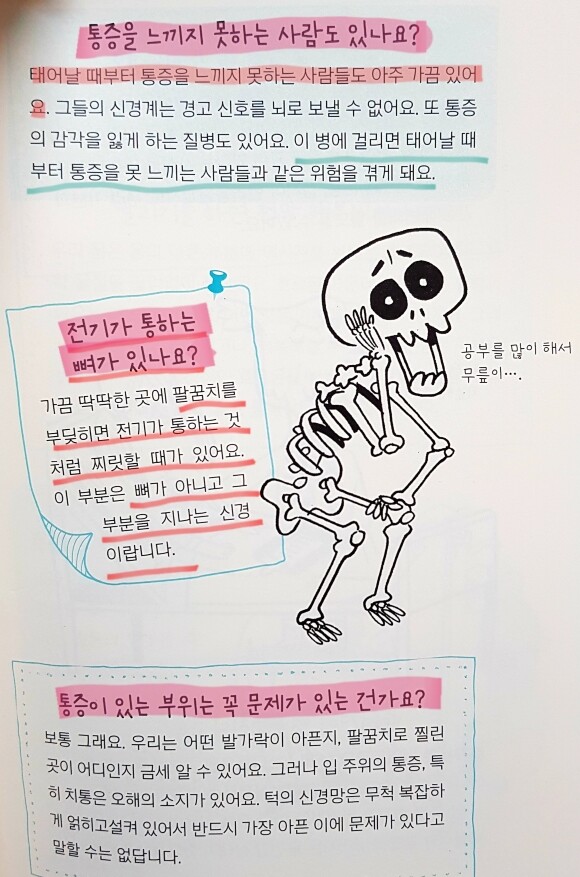 통증을 느끼지 못하는 사람도 있나요?
태어날 때부터 통증을 느끼지 못하는 사람들도 아주 가끔 있어
요. 그들의 신경계는 경고 신호를 뇌로 보낼 수 없어요. 또 통증
의 감각을 잃게 하는 질병도 있어요. 이 병에 걸리면 태어날 때
부터 통증을 못 느끼는 사람들과 같은 위험을 겪게 돼요.
전기가 통하는
뼈가 있나요?
가끔 딱딱한 곳에 팔꿈치를
부딪히면 전기가 통하는 것
처럼 찌릿할 때가 있어요.
이 부분은 뼈가 아니고 그
부분을 지나는 신경
이랍니다.
공부를 많이 해서
무릎이….
통증이 있는 부위는 꼭 문제가 있는 건가요?
보통 그래요. 우리는 어떤 발가락이 아픈지, 팔꿈치로 찔린
곳이 어디인지 금세 알 수 있어요. 그러나 입 주위의 통증, 특
히 치통은 오해의 소지가 있어요. 턱의 신경망은 무척 복잡하
게 얽히고설켜 있어서 반드시 가장 아픈 이에 문제가 있다고
말할 수는 없답니다.